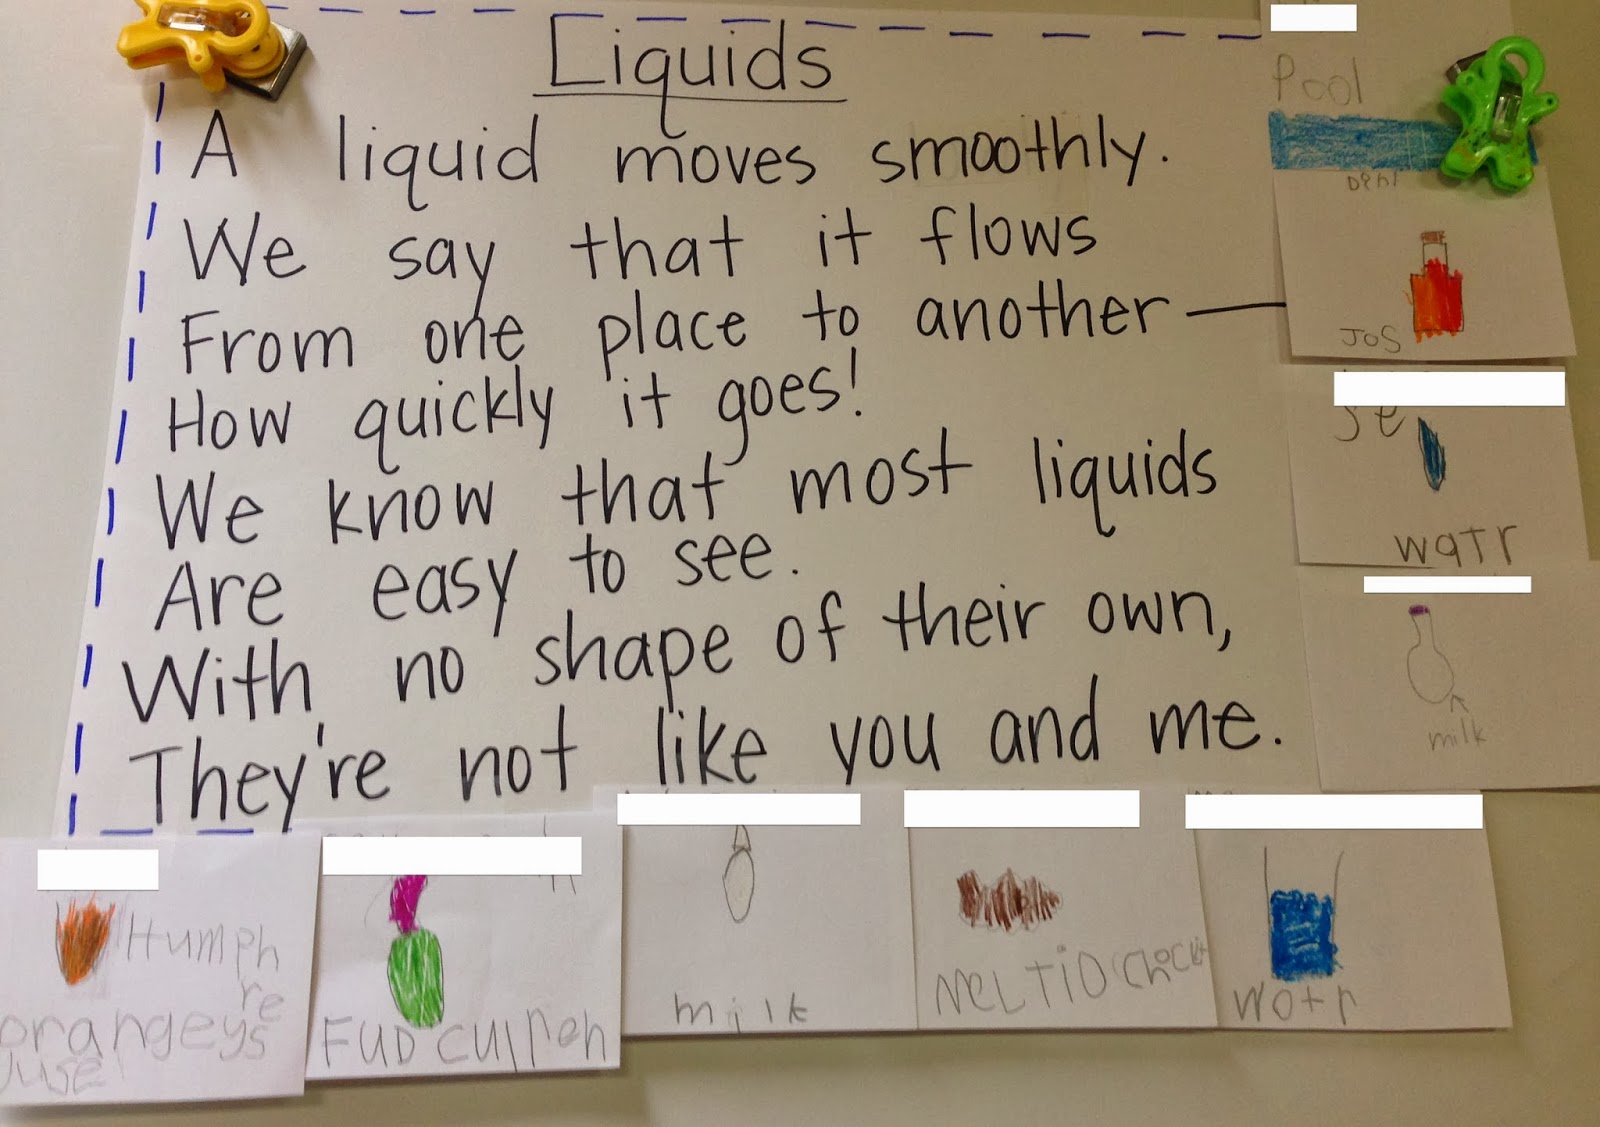 Liquids
A liquid moves smoothly.
We say that it flows
From one place to another—
How quickly it goes!
We know that most liquids
Are easy to see.
With no shape of their own,
They're not like you and me.
Pool
JOS
watr
milk
Humph
re
ys
orange
Juse
FUD
milk
MELTID
wotr